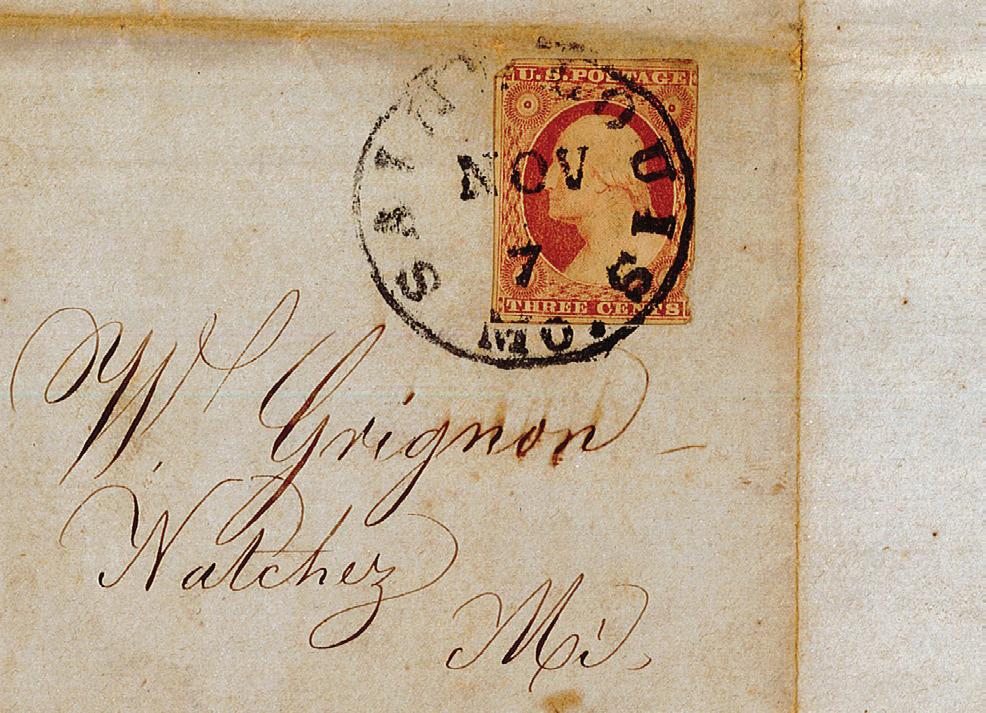 U.S. POSTAGE
SAINT LOUIS
NOV
7
MO.
THREE CENTS
W. Grignon
Natchez
Mi.